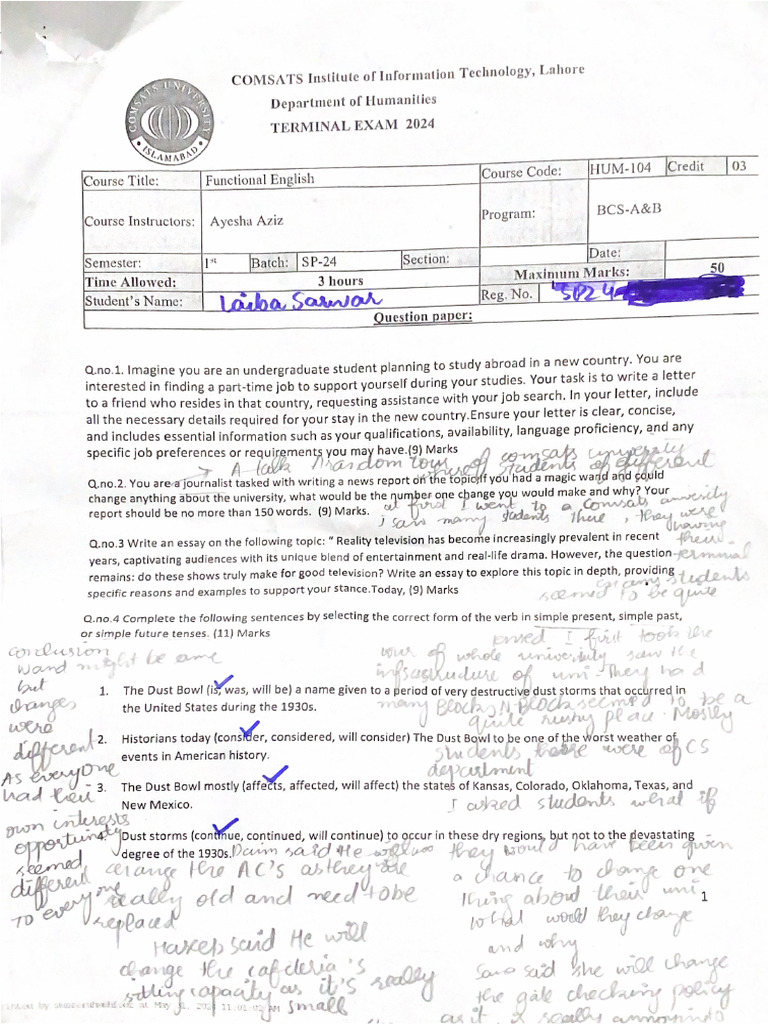 COMSATS UNIVERSITY
ISLAMABAD
COMSATS Institute of Information Technology, Lahore
Department of Humanities
TERMINAL EXAM 2024
Course Title: Functional English Course Code: HUM-104 Credit 03
Course Instructors: Ayesha Aziz Program: BCS-A&B
Semester: 1st Batch: SP-24 Section: Date:
Time Allowed: 3 hours Maximum Marks: 50
Student's Name: Laiba Sarwar Reg. No. SP24-
Question paper:
Q.no.1. Imagine you are an undergraduate student planning to study abroad in a new country. You are
interested in finding a part-time job to support yourself during your studies. Your task is to write a letter
to a friend who resides in that country, requesting assistance with your job search. In your letter, include
all the necessary details required for your stay in the new country.Ensure your letter is clear, concise,
and includes essential information such as your qualifications, availability, language proficiency, and any
specific job preferences or requirements you may have.(9) Marks
A talk of comsats university
students of different
Q.no.2. You are a journalist tasked with writing a news report on the topic,If you had a magic wand and could
change anything about the university, what would be the number one change you would make and why? Your
report should be no more than 150 words. (9) Marks.
at first I went to a Comsats university
i saw many students there, they were
having
Q.no.3 Write an essay on the following topic: " Reality television has become increasingly prevalent in recent
their
years, captivating audiences with its unique blend of entertainment and real-life drama. However, the question
terminal
remains: do these shows truly make for good television? Write an essay to explore this topic in depth, providing
exams students
specific reasons and examples to support your stance.Today, (9) Marks
seemed to be quite
Q.no.4 Complete the following sentences by selecting the correct form of the verb in simple present, simple past,
or simple future tenses. (11) Marks
I first took the
tour of whole university saw the
infrastructure of uni. They had
1. The Dust Bowl (is, was, will be) a name given to a period of very destructive dust storms that occurred in
the United States during the 1930s.
many Blocks, N-Block seemed to be a
quite rushy place. Mostly
2. Historians today (consider, considered, will consider) The Dust Bowl to be one of the worst weather of
events in American history.
students there were of CS
department
3. The Dust Bowl mostly (affects, affected, will affect) the states of Kansas, Colorado, Oklahoma, Texas, and
New Mexico.
I asked students what if
4. Dust storms (continue, continued, will continue) to occur in these dry regions, but not to the devastating
degree of the 1930s.
they would have been given
a chance to change one
thing about their uni
1
What would they change
and why
Sara said she will change
the gate checking policy
as it is really annoying
Daim said He will
change the AC's as they are
really old and need to be
replaced
said He will
change the cafeteria's
sitting capacity as it's really
small
conclusion
wand might be same
but
changes
were
different
As everyone
had their
own interests
opportunity
seemed
different
To everyone